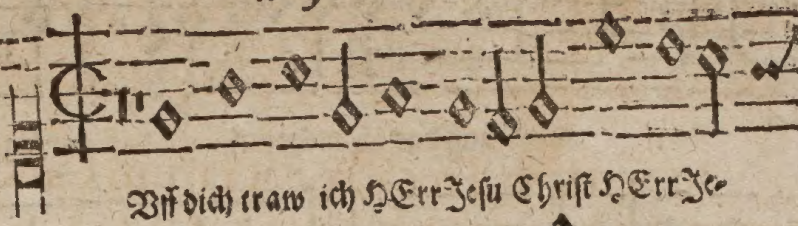 Vff dich traw ich HErr Jesu Christ HErr Je-